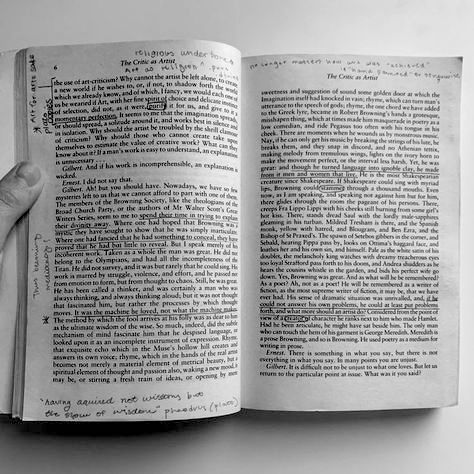 religious undertone
Art as religion
Art for arts sake
6
The Critic as Artist
the use of art-criticism? Why cannot the artist be left alone, to create
a new world if he wishes to, or, if not, to shadow forth the world
which we already know, and of which, I fancy, we would each one of
us be wearied if Art, with her fine spirit of choice and delicate instinct
of selection, did not, as it were, purify it for us, and give to it a
momentary perfection. It seems to me that the imagination spreads,
or should spread, a solitude around it, and works best in silence and
in isolation. Why should the artist be troubled by the shrill clamour
of criticism? Why should those who cannot create take upon
themselves to estimate the value of creative work? What can they
know about it? If a man's work is easy to understand, an explanation
is unnecessary . . .
Gilbert. And if his work is incomprehensible, an explanation is
wicked.
Ernest. I did not say that.
Gilbert. Ah! but you should have. Nowadays, we have so few
mysteries left to us that we cannot afford to part with one of them.
The members of the Browning Society, like the theologians of the
Broad Church Party, or the authors of Mr Walter Scott's Great
Writers Series, seem to me to spend their time in trying to explain
their divinity away. Where one had hoped that Browning was a
mystic they have sought to show that he was simply inarticulate.
Where one had fancied that he had something to conceal, they have
proved that he had but little to reveal. But I speak merely of his
incoherent work. Taken as a whole the man was great. He did not
belong to the Olympians, and had all the incompleteness of the
Titan. He did not survey, and it was but rarely that he could sing. His
work is marred by struggle, violence, and effort, and he passed not
from emotion to form, but from thought to chaos. Still, he was great.
He has been called a thinker, and was certainly a man who was
always thinking, and always thinking aloud; but it was not thought
that fascinated him, but rather the processes by which thought
moves. It was the machine he loved, not what the machine makes.
The method by which the fool arrives at his folly was as dear to him
as the ultimate wisdom of the wise. So much, indeed, did the subtle
mechanism of mind fascinate him that he despised language, or
looked upon it as an incomplete instrument of expression. Rhyme,
that exquisite echo which in the Muse's hollow hill creates and
answers its own voice; rhyme, which in the hands of the real artist
becomes not merely a material element of metrical beauty, but a
spiritual element of thought and passion also, waking a new mood, it
may be, or stirring a fresh train of ideas, or opening by mere
"having aquired not wisdom but
the show of wisdom" phaedrus (plato)
The Critic as Artist
sweetness and suggestion of sound some golden door at which the
Imagination itself had knocked in vain; rhyme, which can turn man's
utterance to the speech of gods; rhyme, the one chord we have added
to the Greek lyre, became in Robert Browning's hands a grotesque,
misshapen thing, which at times made him masquerade in poetry as a
low comedian, and ride Pegasus too often with his tongue in his
cheek. There are moments when he wounds us by monstrous music.
Nay, if he can only get his music by breaking the strings of his lute, he
breaks them, and they snap in discord, and no Athenian tettix,
making melody from tremulous wings, lights on the ivory horn to
make the movement perfect, or the interval less harsh. Yet, he was
great: and though he turned language into ignoble clay, he made
from it men and women that live. He is the most Shakespearian
creature since Shakespeare. If Shakespeare could sing with myriad
lips, Browning could stammer through a thousand mouths. Even
now, as I am speaking, and speaking not against him but for him,
there glides through the room the pageant of his persons. There,
creeps Fra Lippo Lippi with his cheeks still burning from some girl's
hot kiss. There, stands dread Saul with the lordly male-sapphires
gleaming in his turban. Mildred Tresham is there, and the Spanish
monk, yellow with hatred, and Blougram, and Ben Ezra, and the
Bishop of St Praxed's. The spawn of Setebos gibbers in the corner, and
Sebald, hearing Pippa pass by, looks on Ottima's haggard face, and
loathes her and his own sin, and himself. Pale as the white satin of his
doublet, the melancholy king watches with dreamy treacherous eyes
too loyal Strafford pass forth to his doom, and Andrea shudders as he
hears the cousins whistle in the garden, and bids his perfect wife go
down. Yes, Browning was great. And as what will he be remembered?
As a poet? Ah, not as a poet! He will be remembered as a writer of
fiction, as the most supreme writer of fiction, it may be, that we have
ever had. His sense of dramatic situation was unrivalled, and, if he
could not answer his own problems, he could at least put problems
forth, and what more should an artist do? Considered from the point of
view of a creator of character he ranks next to him who made Hamlet.
Had he been articulate, he might have sat beside him. The only man
who can touch the hem of his garment is George Meredith. Meredith is
a prose Browning, and so is Browning. He used poetry as a medium for
writing in prose.
Ernest. There is something in what you say, but there is not
everything in what you say. In many points you are unjust.
Gilbert. It is difficult not to be unjust to what one loves. But let us
return to the particular point at issue. What was it you said?